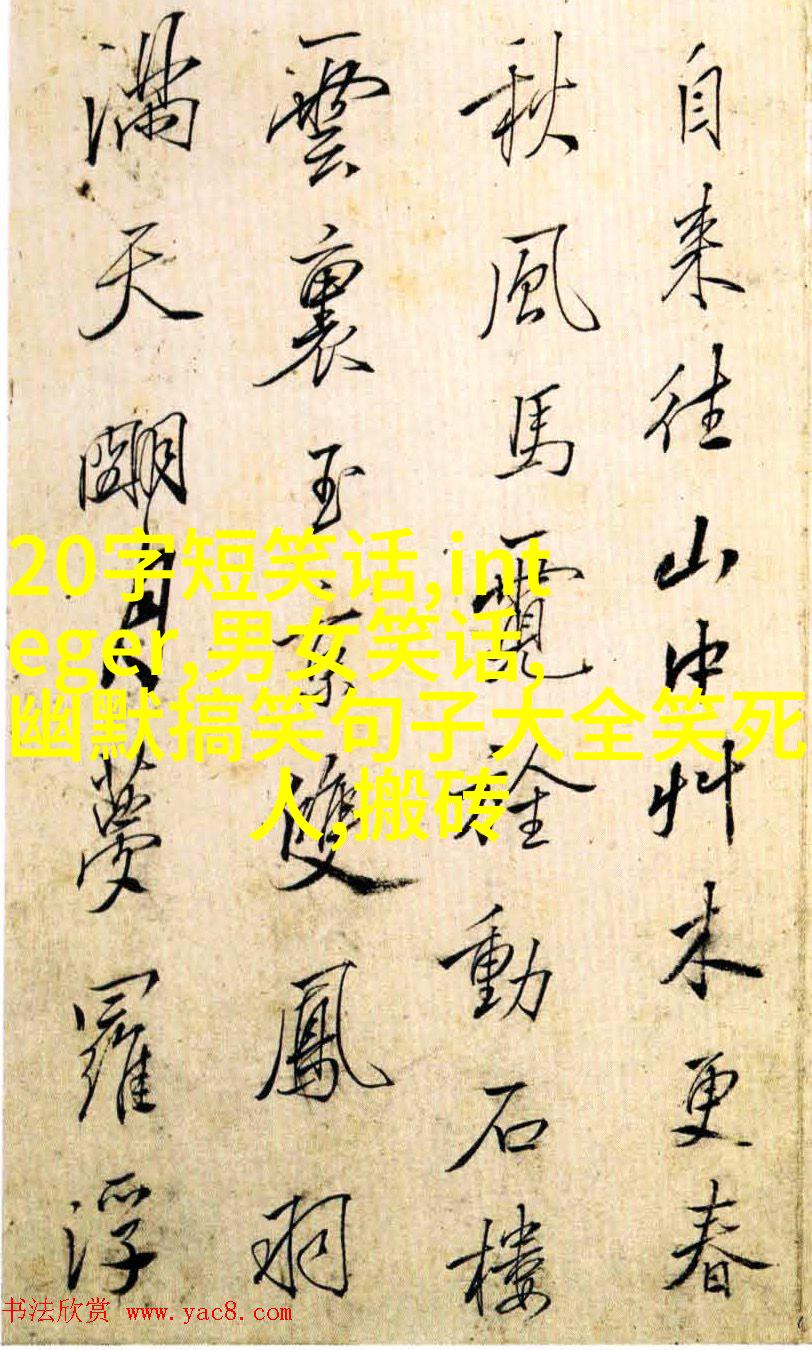 自来往山中艸木更春
秋風馬動石樓
雲裏玉京雙鳳
滿天月夢羅浮
20字短笑话,int
eger,男女笑话,
幽默搞笑句子大全笑死
人,搬砖
书法欣赏 www.yac8.com